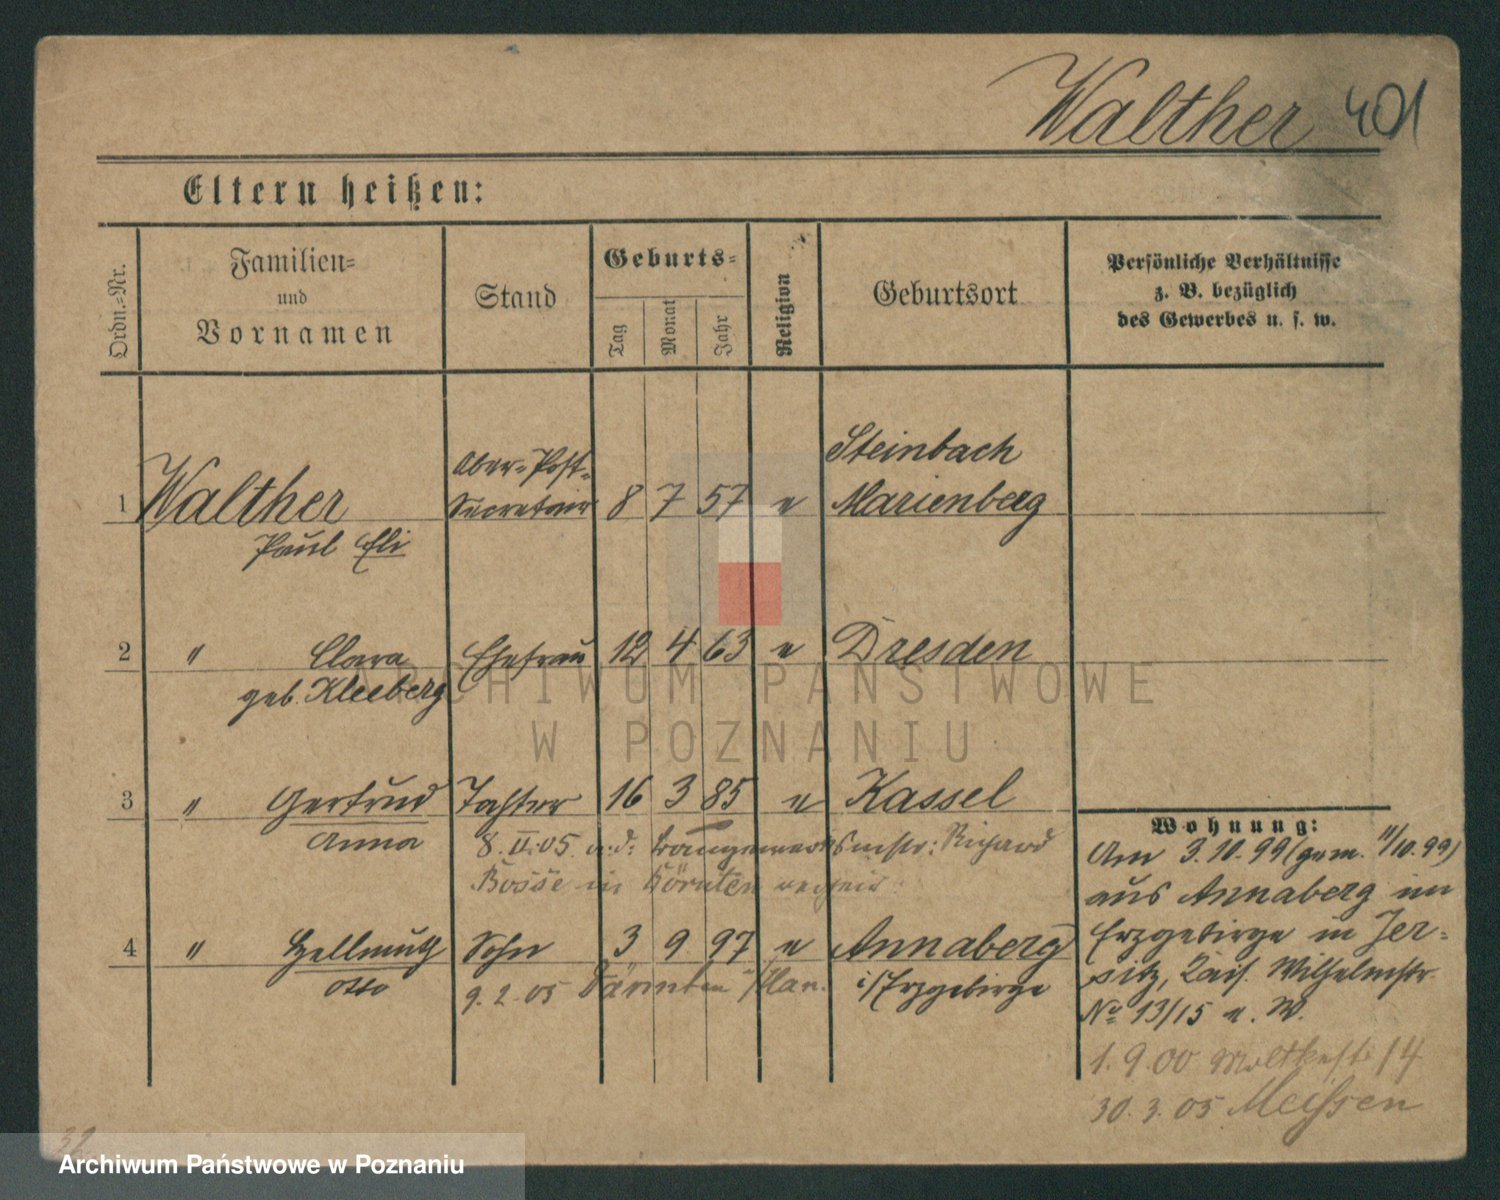 Walther 401
Eltern heißen:
Ordn.=Nr.
Familien=
und
Vornamen
Stand
Geburts=
Tag
Monat
Jahr
Religion
Geburtsort
Persönliche Verhältnisse
z. B. bezüglich
des Gewerbes u. s. w.
Ober=Post=
Steinbach
1 Walther Secretair 8 7 57 e Marienberg
Paul Eli
2 " Clara Ehefrau 12 4 63 e Dresden
geb. Kleeberg
3 " Gertrud Tochter 16 3 85 e Kassel
Anna
8. II. 05 Richard
Bosse in
4 " Hellmuth Sohn 3 9 97 e Annaberg
Otto 9. 2. 05 i/Erzgebirge
Wohnung:
Am 3.10.99 (gem. 11/10.99)
aus Annaberg im
Erzgebirge in Jer=
sitz, Kais. Wilhelmstr.
No 13/15 e. W.
1. 9. 00 Moltkestr 14
30. 3. 05 Meissen
32
ARCHIWUM PAŃSTWOWE
W POZNANIU
Archiwum Państwowe w Poznaniu